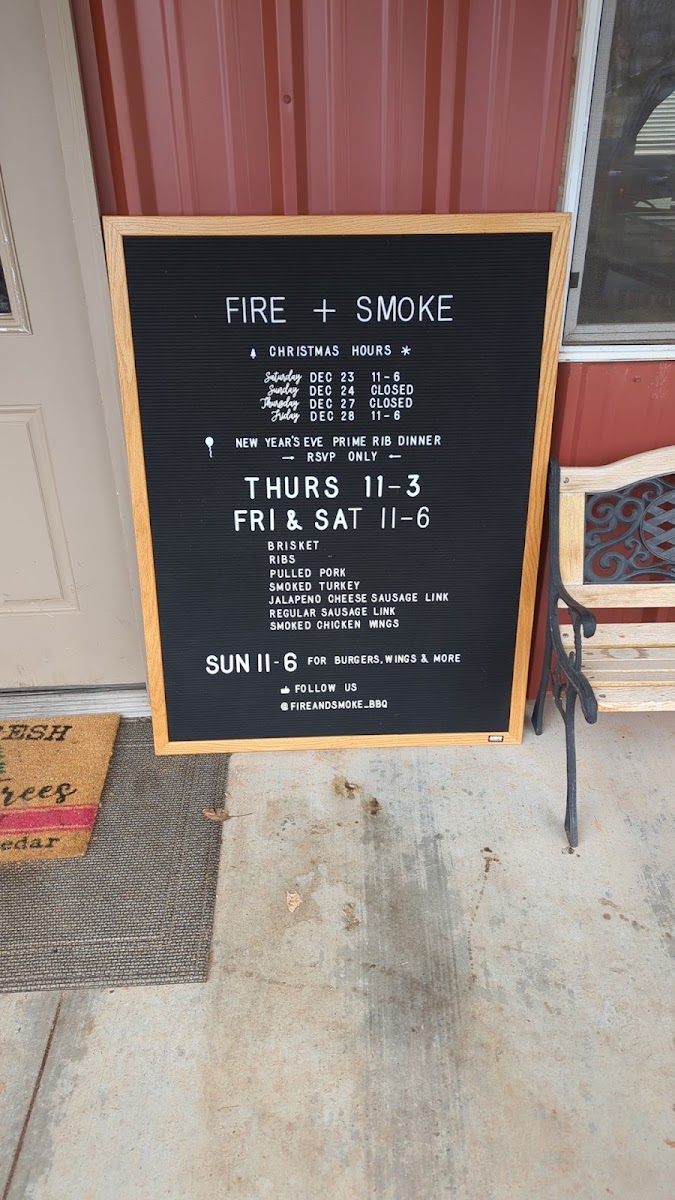 FIRE + SMOKE
CHRISTMAS HOURS *
Saturday DEC 23 11-6
Sunday DEC 24 CLOSED
Thursday DEC 27 CLOSED
Friday DEC 28 11-6
NEW YEAR'S EVE PRIME RIB DINNER
→ RSVP ONLY ←
THURS 11-3
FRI & SAT 11-6
BRISKET
RIBS
PULLED PORK
SMOKED TURKEY
JALAPENO CHEESE SAUSAGE LINK
REGULAR SAUSAGE LINK
SMOKED CHICKEN WINGS
SUN 11-6 FOR BURGERS, WINGS & MORE
FOLLOW US
@FIREANDSMOKE_BBQ
RESH
rees
edar